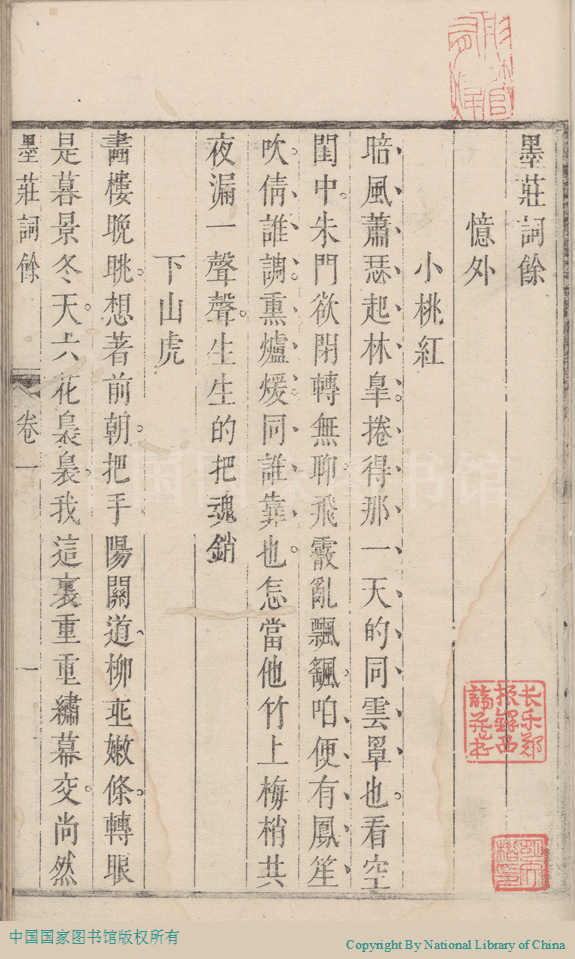 墨莊詞餘
憶外
小桃紅
暗風蕭瑟起林臯捲得那一天的同雲罩也看空
閨中朱門欲閉轉無聊飛霰亂飄颻咱便有鳳笙
吹倩誰調熏爐煖同誰靠也怎當他竹上梅梢共
夜漏一聲聲生生的把魂銷
下山虎
畵樓晚眺想著前朝把手陽關道柳亞嫩條轉眼
是暮景冬天六花裊裊我這裏重重繡幕交尚然
墨莊詞餘 卷一 一
长乐郑
振鐸西
諦藏书
中国国家图书馆版权所有
Copyright By National Library of China